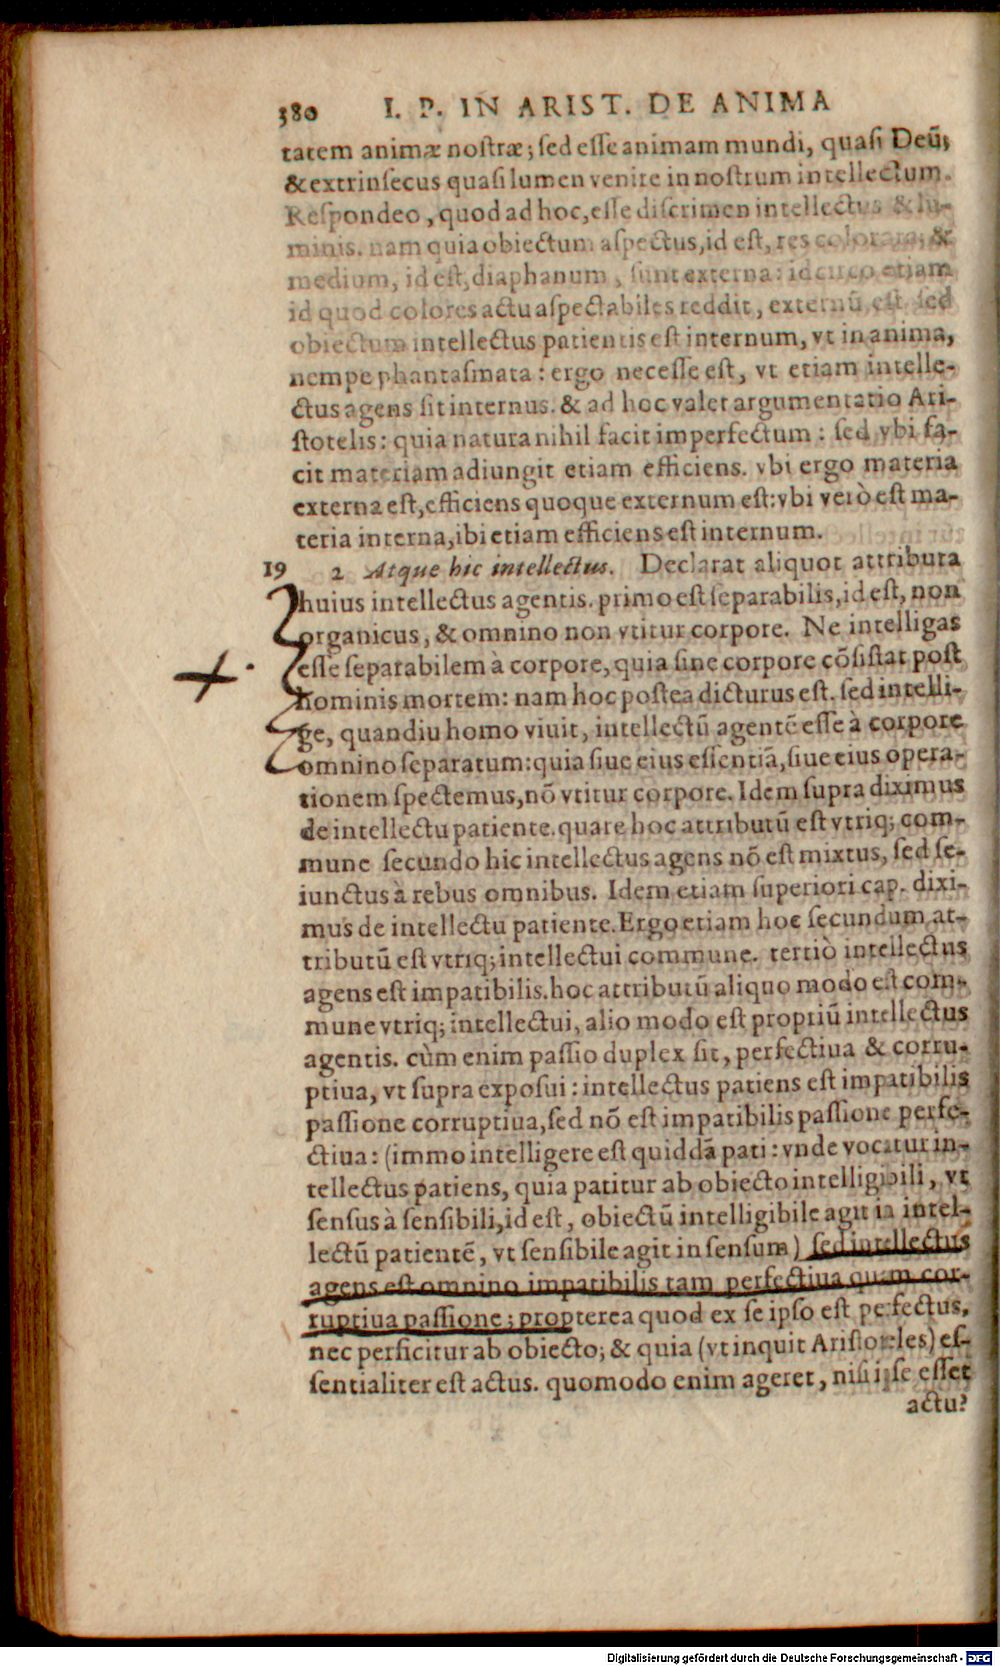 380 I. P. IN ARIST. DE ANIMA
tatem animæ nostræ; sed esse animam mundi, quasi Deū;
& extrinsecus quasi lumen venire in nostrum intellectum.
Respondeo, quod ad hoc, esse discrimen intellectus & lu-
minis. nam quia obiectum aspectus, id est, res colorata; &
medium, id est, diaphanum, sunt externa: idcirco etiam
id quod colores actu aspectabiles reddit, externū est. sed
obiectum intellectus patientis est internum, vt in anima,
nempe phantasmata: ergo necesse est, vt etiam intelle-
ctus agens sit internus. & ad hoc valet argumentatio Ari-
stotelis: quia natura nihil facit imperfectum: sed vbi fa-
cit materiam adiungit etiam efficiens. vbi ergo materia
externa est, efficiens quoque externum est: vbi verò est ma-
teria interna, ibi etiam efficiens est internum.
19 2 Atque hic intellectus. Declarat aliquot attributa
huius intellectus agentis. primo est separabilis, id est, non
organicus, & omnino non vtitur corpore. Ne intelligas
esse separabilem à corpore, quia sine corpore cōsistat post
hominis mortem: nam hoc postea dicturus est. sed intelli-
ge, quandiu homo viuit, intellectū agentē esse à corpore
omnino separatum: quia siue eius essentiā, siue eius opera-
tionem spectemus, nō vtitur corpore. Idem supra diximus
de intellectu patiente. quare hoc attributū est vtriq; com-
mune secundo hic intellectus agens nō est mixtus, sed se-
iunctus à rebus omnibus. Idem etiam superiori cap. dixi-
mus de intellectu patiente. Ergo etiam hoc secundum at-
tributū est vtriq; intellectui commune. tertiò intellectus
agens est impatibilis. hoc attributū aliquo modo est com-
mune vtriq; intellectui, alio modo est propriū intellectus
agentis. cùm enim passio duplex sit, perfectiua & corru-
ptiua, vt supra exposui: intellectus patiens est impatibilis
passione corruptiua, sed nō est impatibilis passione perfe-
ctiua: (immo intelligere est quiddā pati: vnde vocatur in-
tellectus patiens, quia patitur ab obiecto intelligibili, vt
sensus à sensibili, id est, obiectū intelligibile agit in intel-
lectū patientē, vt sensibile agit in sensum) sed intellectus
agens est omnino impatibilis tam perfectiua quam cor-
ruptiua passione; propterea quod ex se ipso est perfectus,
nec perficitur ab obiecto; & quia (vt inquit Aristoteles) es-
sentialiter est actus. quomodo enim ageret, nisi ipse esset
actu?
Digitalisierung gefördert durch die Deutsche Forschungsgemeinschaft - DFG